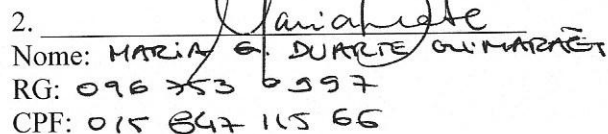 2.
Nome: MARIA G. DUARTE GUIMARAES
RG: 096 753 0997
CPF: 015 847 115 66